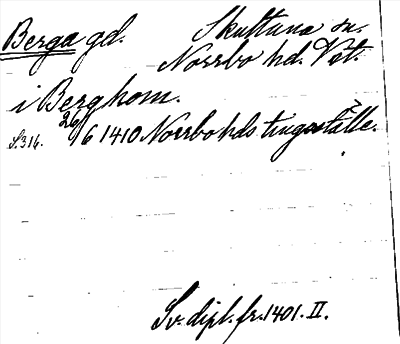 Berga gd. Skultuna sn.
Norrbo hd. Vst.
i Berghom.
S. 316. 26/6 1410 Norrbo hds tingsställe.
Sv. dipl. fr. 1401. II.